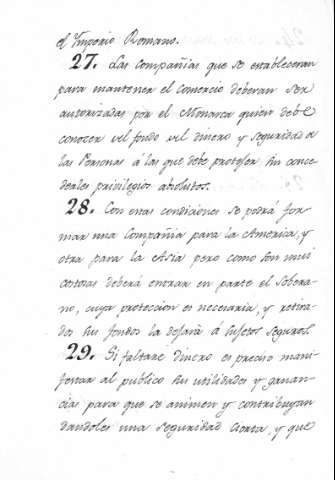 el Imperio Romano.
27. Las compañias que se estableceran
para mantener el comercio deberan ser
autorizadas por el Monarca quien debe
conocer del fondo del dinero y seguridad a
las Personas á las que debe proteger sin conce
derles privilegios absolutos.
28. Con estas condiciones se podrá for
mar una Compañia para la America, y
otra para la Asia pero como son mui
costosas deberá entrar en parte el Sobera-
no, cuya proteccion es necesaria, y retira-
dos sus fondos la dejará á sujetos seguros.
29. Si faltare dinero es preciso mani
festar al publico sus utilidades y ganan
cias para que se animen y contribuyan
dandoles una seguridad cierta, y que